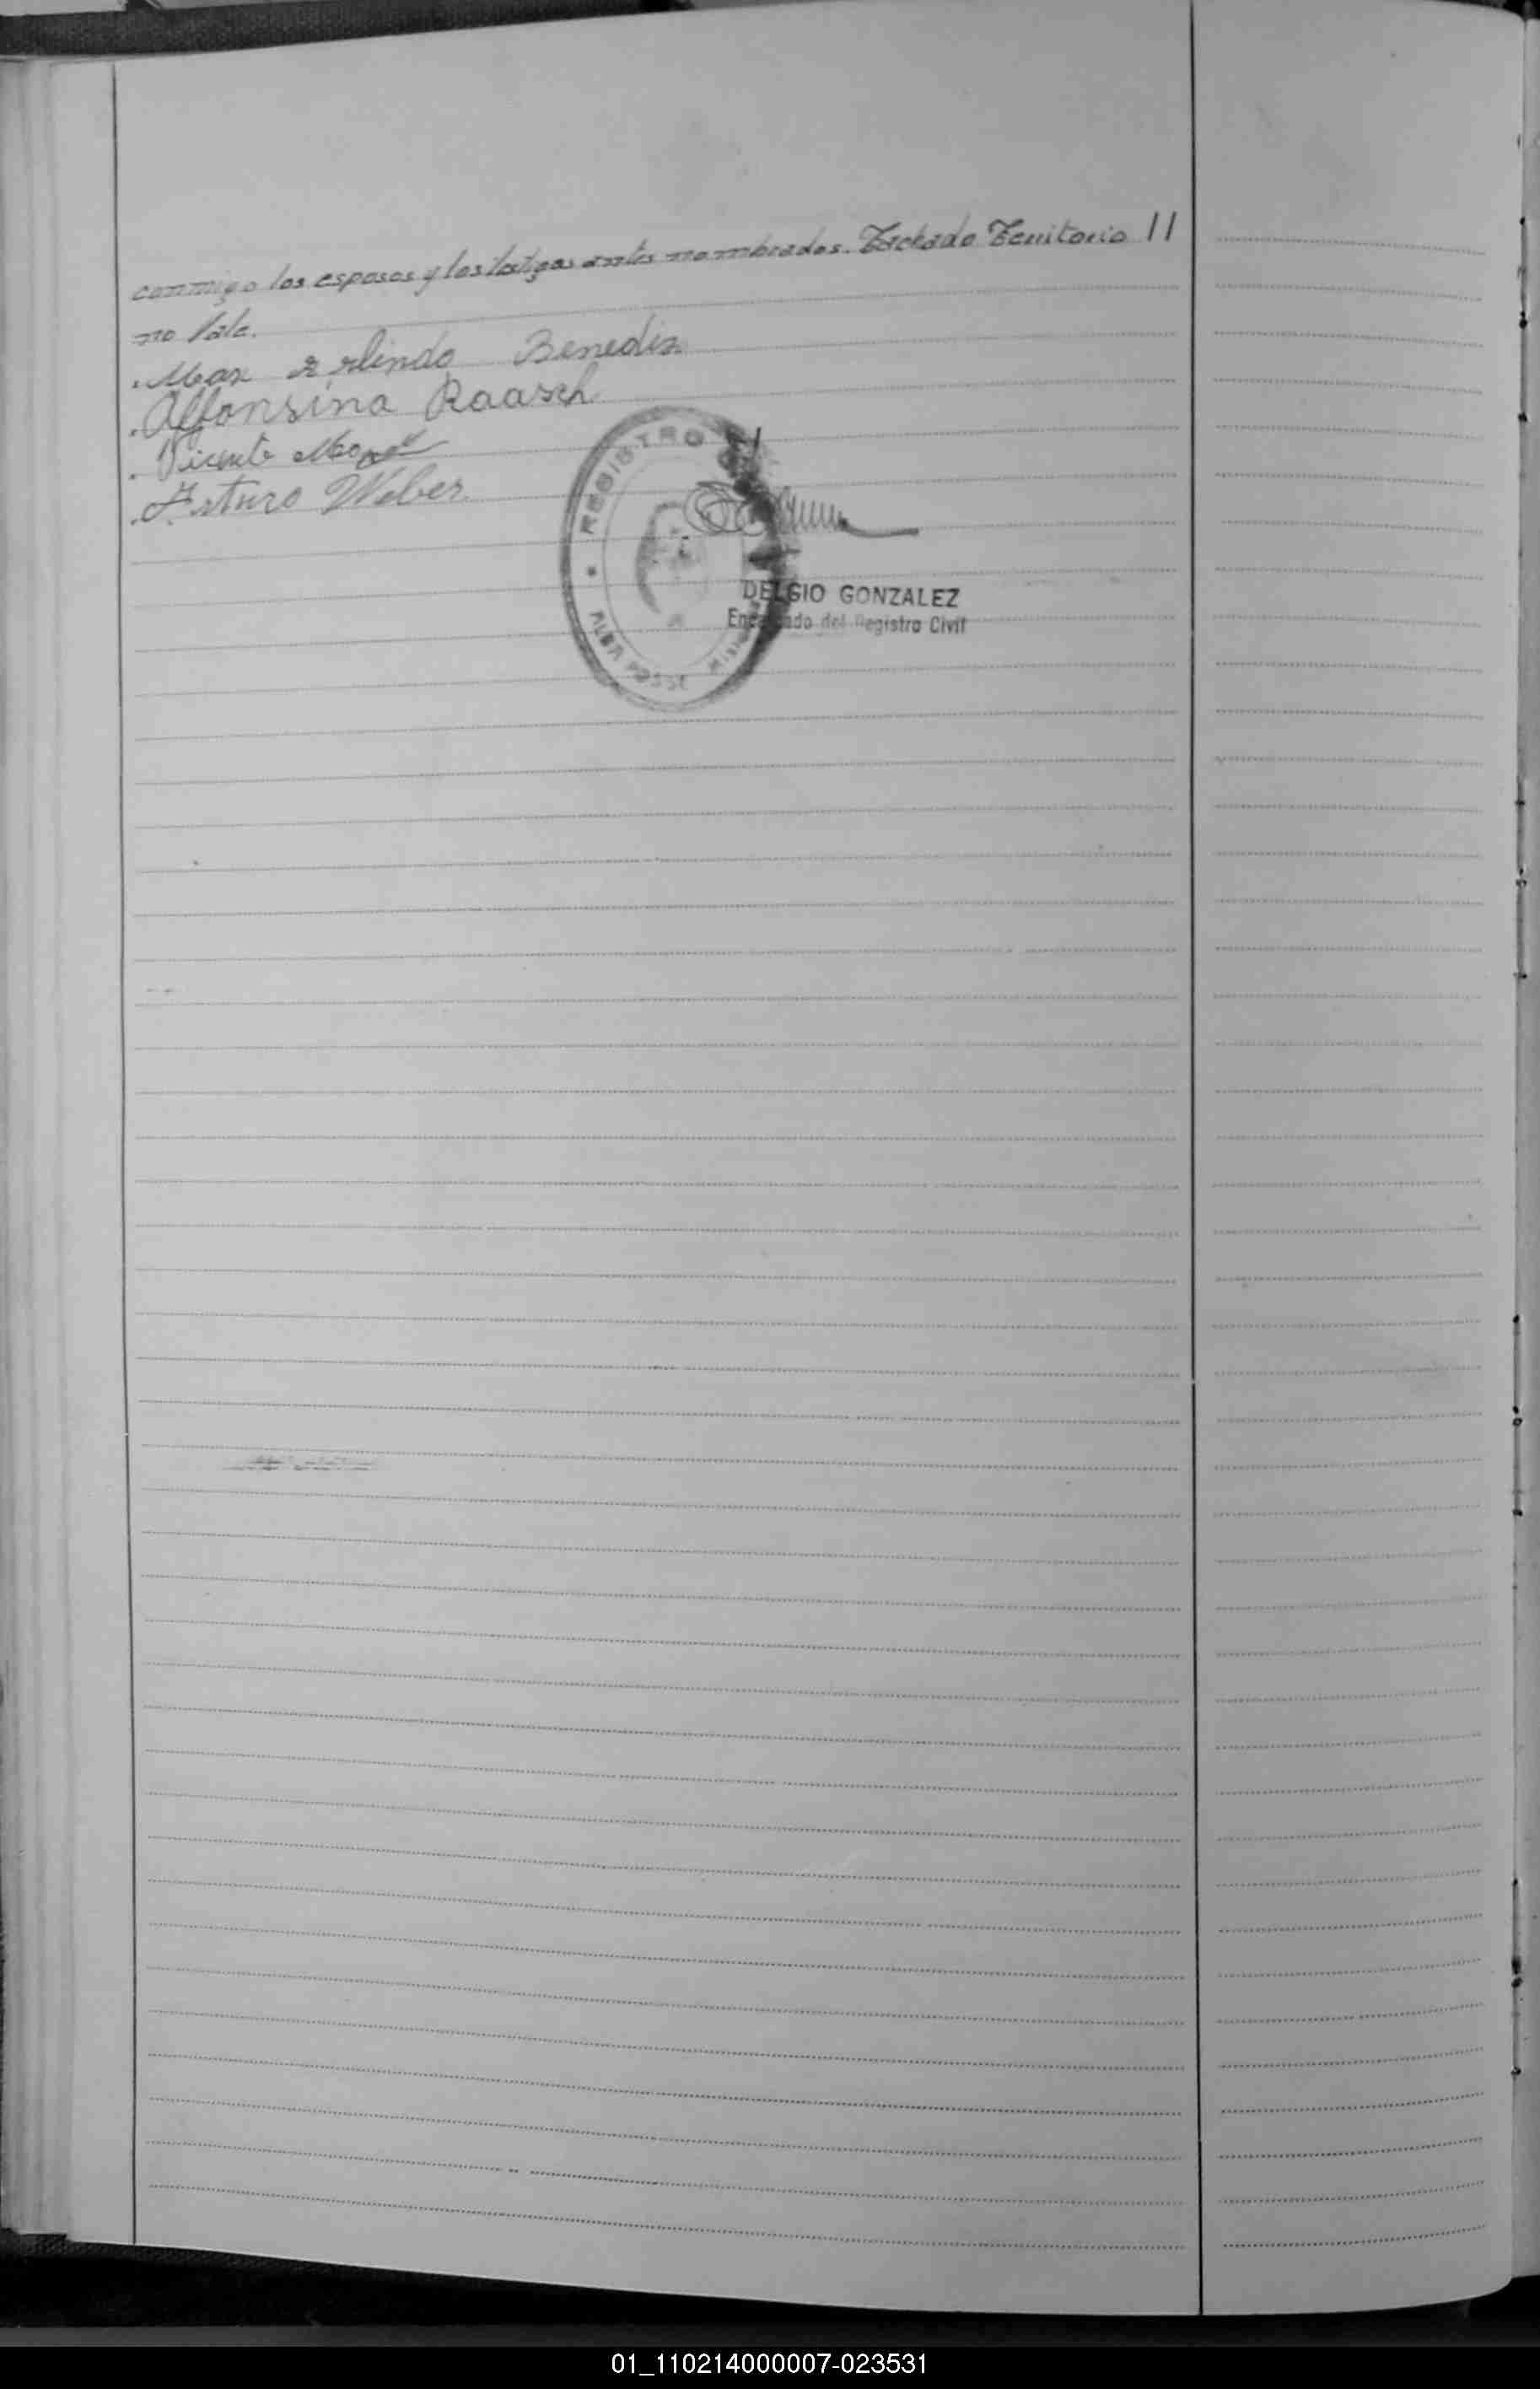 conmigo los esposos y los testigos antes nombrados. Tachado Territorio 11
no Vale.
Max Arlindo Benedix
Alfonsina Raasch
Vicente
Arturo Weber
REGISTRO
ALBA POSSE
DELGIO GONZALEZ
Encargado del Registro Civil
01_110214000007-023531